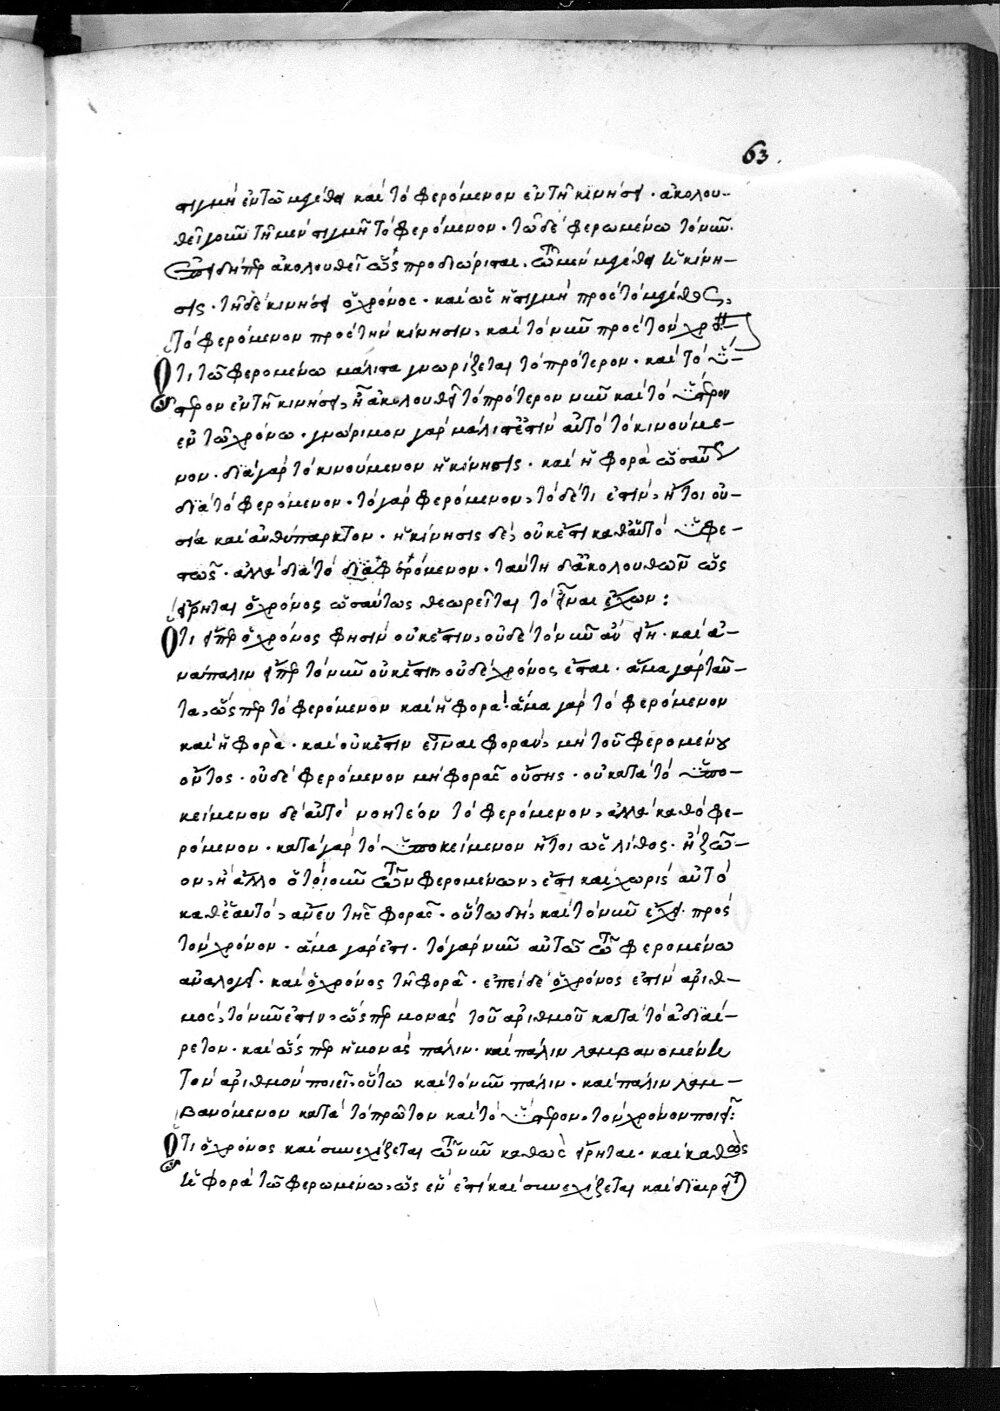 63.
στιγμὴ ἐν τῶ μεγέθει καὶ τὸ φερόμενον ἐν τῆ κινήσει · ἀκολου-
θεῖ γοῦν τῆ μὲν στιγμῆ τὸ φερόμενον · τῶ δὲ φερωμένω τὸ νῦν.
ἐπειδήπερ ἀκολουθεῖ ὡς προδιώρισται · τῶ μὲν μεγέθει ἡ κίνη-
σις · τῆ δὲ κινήσει ὁ χρόνος · καὶ ὡς ἡ στιγμὴ πρὸς τὸ μέγεθος,
τὸ φερόμενον πρὸς τὴν κίνησιν, καὶ τὸ νῦν πρὸς τὸν χρόνον
Ὅτι τῶ φερομένω μάλιστα γνωρίζεται τὸ πρότερον · καὶ τὸ ὕ-
στερον ἐν τῆ κινήσει, ἧ ἀκολουθεῖ τὸ πρότερον νῦν καὶ τὸ ὕστερον
ἐν τῶ χρόνω · γνώριμον γὰρ μάλιστ' ἐστὶν αὐτὸ τὸ κινούμε-
νον · διὰ γὰρ τὸ κινούμενον ἡ κίνησις · καὶ ἡ φορὰ ὡσαύτως
διὰ τὸ φερόμενον · τὸ γὰρ φερόμενον, τόδε τι ἐστὶν, ἤτοι οὐ-
σία καὶ αὐθύπαρκτον · ἡ κίνησις δὲ, οὐκ ἔστι καθ' αὑτὸ ὑφε-
στῶς · ἀλλὰ διὰ τὸ διαφερόμενον · ταύτη δ' ἀκολουθῶν ὡς
εἴρηται ὁ χρόνος ὡσαύτως θεωρεῖται τὸ εἶναι ἔχων :
Ὅτι εἴπερ ὁ χρόνος φησὶν οὐκ ἔστιν, οὐδὲ τὸ νῦν ἂν εἴη · καὶ ἀ-
νάπαλιν εἴπερ τὸ νῦν οὐκ ἔστιν οὐδὲ χρόνος ἔσται · ἅμα γὰρ ταῦ-
τα, ὥσπερ τὸ φερόμενον καὶ ἡ φορά · ἅμα γὰρ τὸ φερόμενον
καὶ ἡ φορά · καὶ οὐκ ἔστιν εἶναι φορὰν, μὴ τοῦ φερομένου
ὄντος · οὐδὲ φερόμενον μὴ φορᾶς οὔσης · οὐ κατὰ τὸ ὑπο-
κείμενον δὲ αὐτὸ νοητέον τὸ φερόμενον, ἀλλὰ καθὸ φε-
ρόμενον · κατὰ γὰρ τὸ ὑποκείμενον ἤτοι ὡς λίθος · ἢ ζῶ-
ον, ἢ ἄλλο ὁτιοῦν τῶν φερομένων, ἔστι καὶ χωρὶς αὐτὸ
καθ' ἑαυτὸ, ἄνευ τῆς φορᾶς · οὕτω δὴ, καὶ τὸ νῦν ἔχει πρὸς
τὸν χρόνον · ἅμα γάρ ἐστι · τὸ γὰρ νῦν αὐτῶ τῶ φερομένω
ἀναλογεῖ · καὶ ὁ χρόνος τῆ φορᾶ · ἐπεὶ δὲ ὁ χρόνος ἐστὶν ἀριθ-
μὸς, τὸ νῦν ἐστιν, ὥσπερ μονὰς τοῦ ἀριθμοῦ κατὰ τὸ ἀδιαί-
ρετον · καὶ ὥσπερ ἡ μονὰς πάλιν · καὶ πάλιν λαμβανομένη
τὸν ἀριθμὸν ποιεῖ, οὕτω καὶ τὸ νῦν πάλιν · καὶ πάλιν λαμ-
βανόμενον κατὰ τὸ πρῶτον καὶ τὸ ὕστερον, τὸν χρόνον ποιεῖ:
Ὅτι ὁ χρόνος καὶ συνεχίζεται τῶ νῦν καθὼς εἴρηται · καὶ καθὼς
ἡ φορὰ τῶ φερωμένω, ὡς ἕν ἐστι καὶ συνεχίζεται καὶ διαιρεῖται